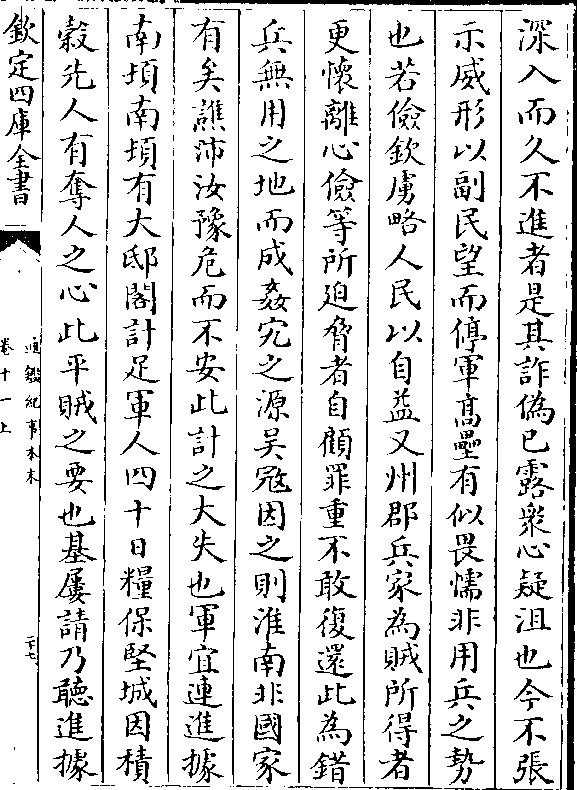 深入而久不進者是其詐偽已露衆心疑沮也今不張
示威形以副民望而停軍髙壘有似畏懦非用兵之勢
也若儉欽虜略人民以自益又州郡兵家為賊所得者
更懷離心儉等所迫脅者自顧罪重不敢復還此為錯
兵無用之地而成姦宄之源吴冦因之則淮南非國家
有矣譙沛汝豫危而不安此計之大失也軍宜速進據
南頓南頓有大邸閣計足軍人四十日糧保堅城因積
穀先人有奪人之心此平賊之要也基屢請乃聽進據
欽定四庫全書
通鑑紀事本末
卷十一上
二十七